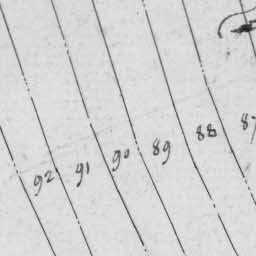 92 91 90 89 88 87